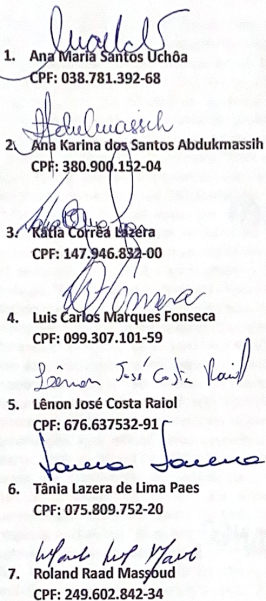 1. Ana Maria Santos Uchôa
CPF: 038.781.392-68
Abdulmassih
2. Ana Karina dos Santos Abdukmassih
CPF: 380.900.152-04
3. Katia Corrêa Lazera
CPF: 147.946.832-00
Fonseca
4. Luis Carlos Marques Fonseca
CPF: 099.307.101-59
Lênon José Costa Raiol
5. Lênon José Costa Raiol
CPF: 676.637532-91
6. Tânia Lazera de Lima Paes
CPF: 075.809.752-20
7. Roland Raad Massoud
CPF: 249.602.842-34